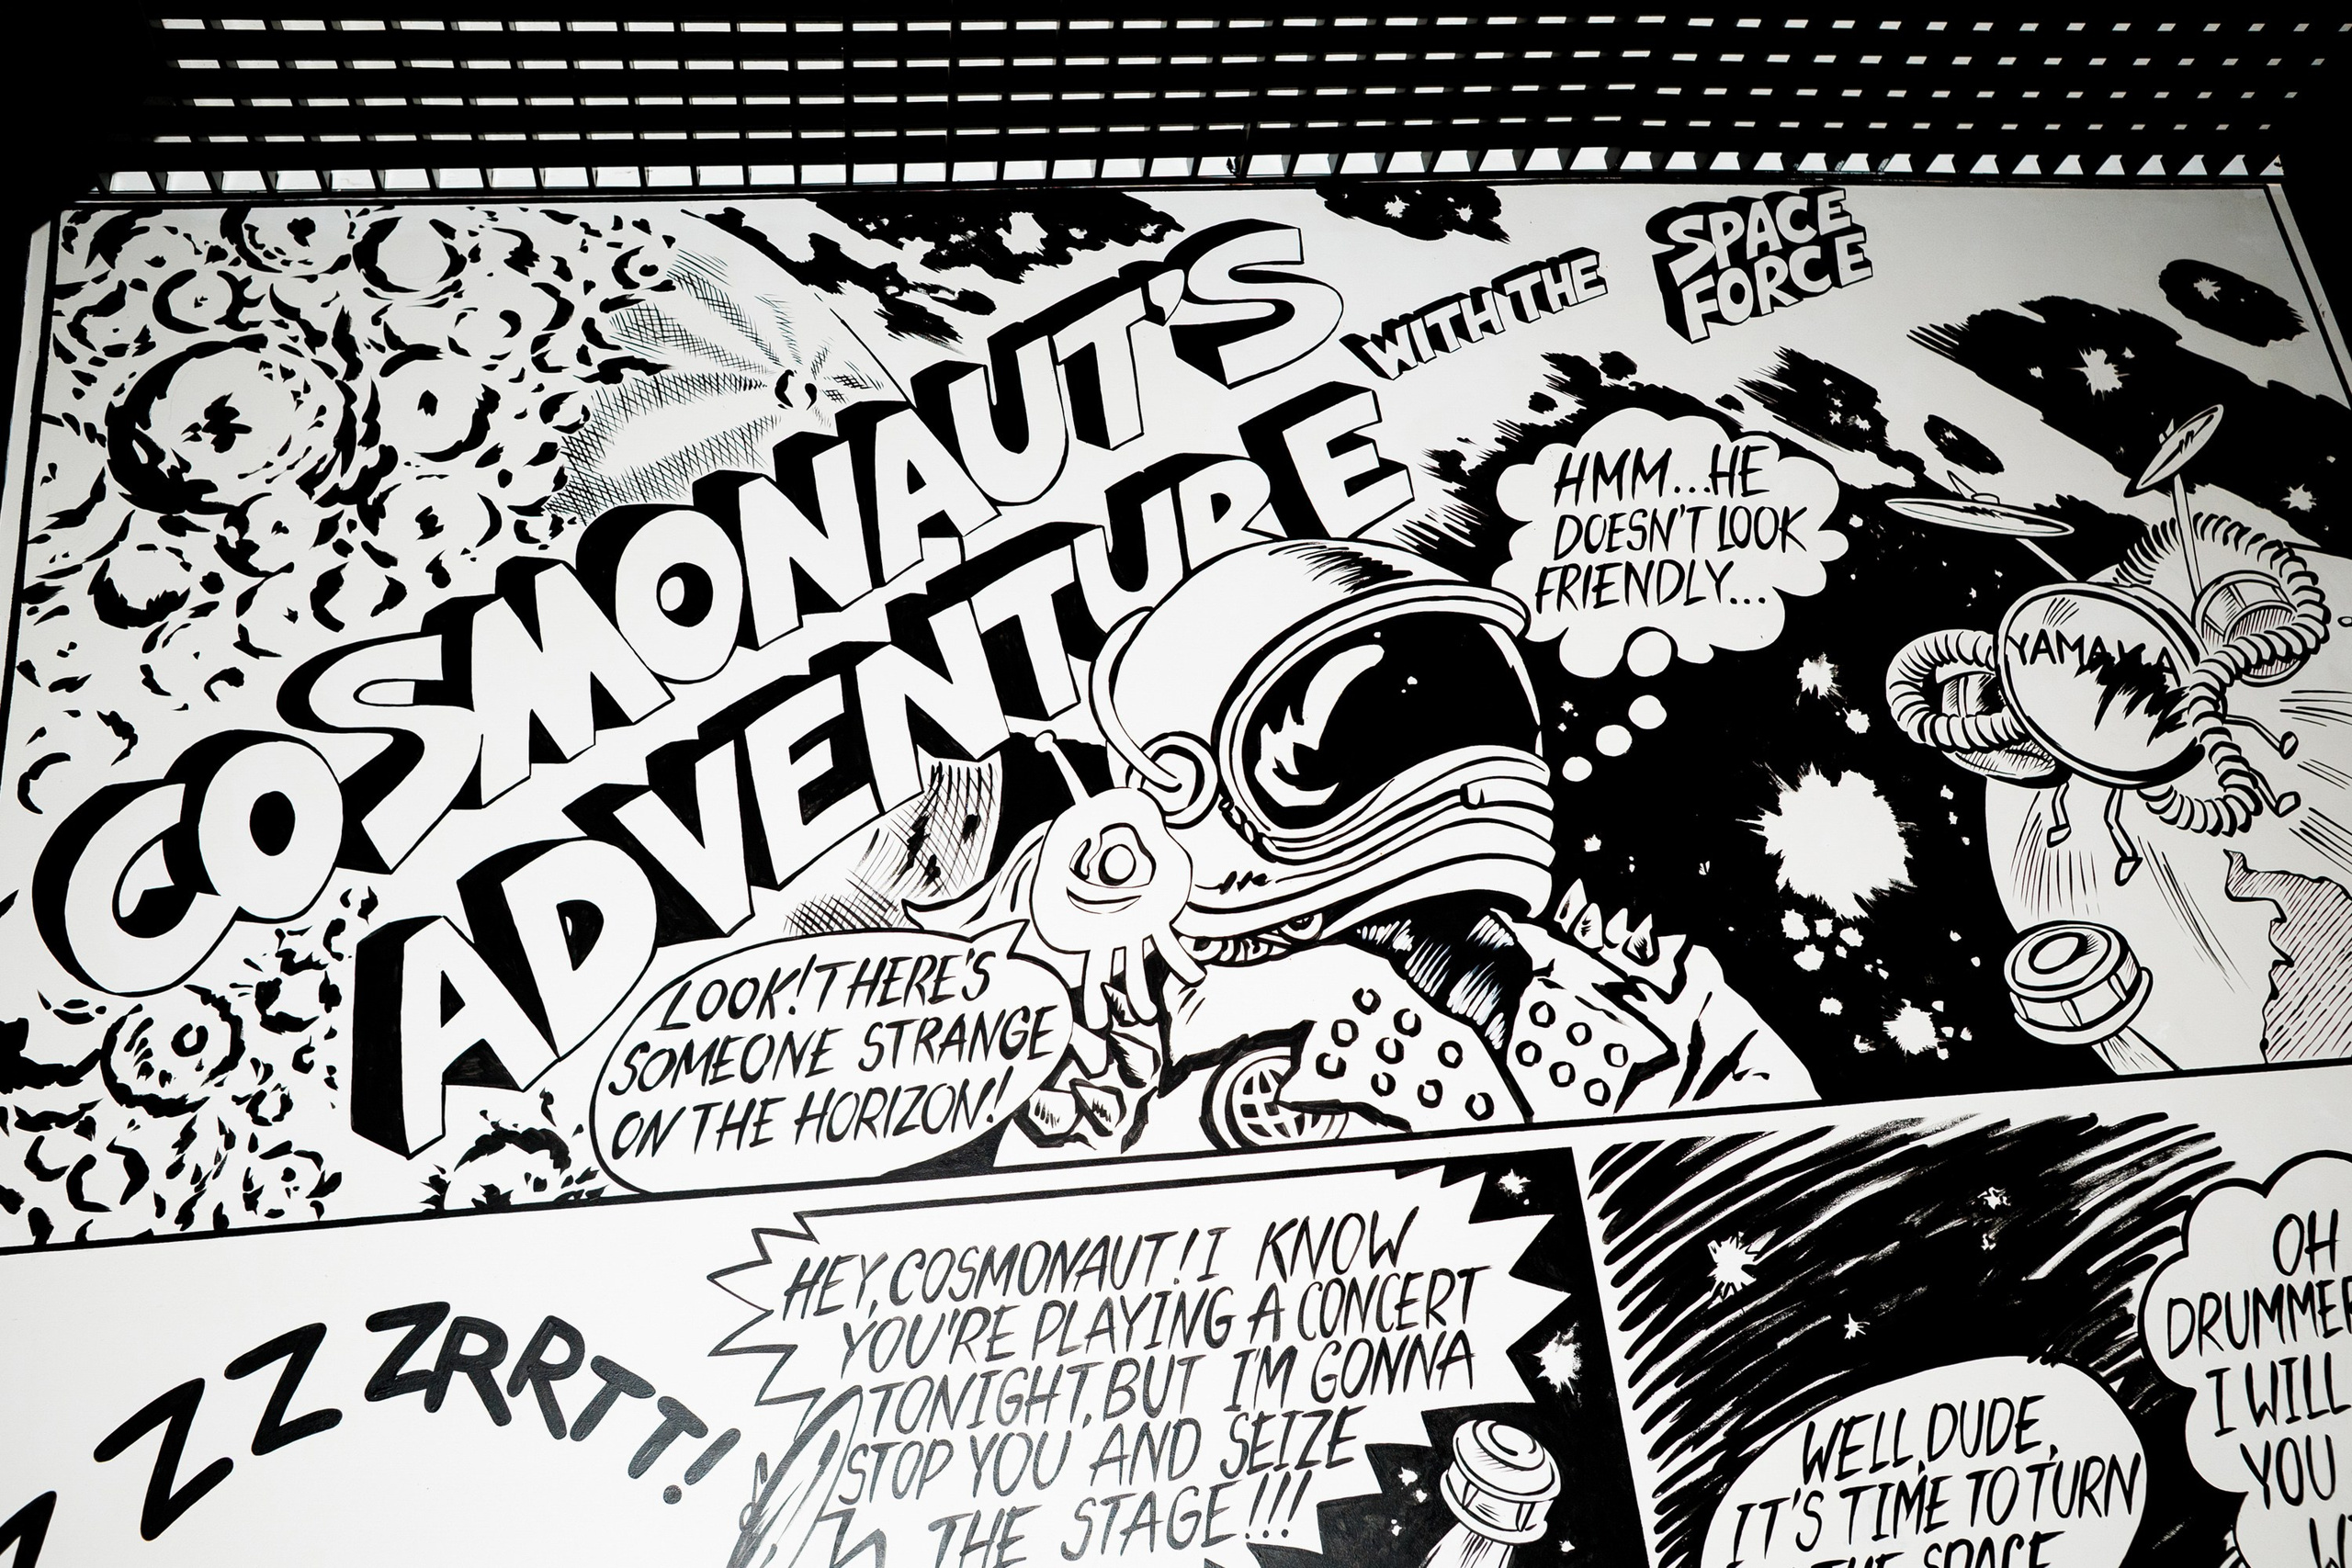 COSMONAUT'S
ADVENTURE
WITH THE
SPACE
FORCE
HMM...HE
DOESN'T LOOK
FRIENDLY...
LOOK! THERE'S
SOMEONE STRANGE
ON THE HORIZON!
ZZ ZRRTT!
HEY, COSMONAUT! I KNOW
YOU'RE PLAYING A CONCERT
TONIGHT, BUT I'M GONNA
STOP YOU AND SEIZE
THE STAGE!!!
WELL, DUDE,
IT'S TIME TO TURN
THE SPACE
OH
DRUMMER
I WILL
YOU